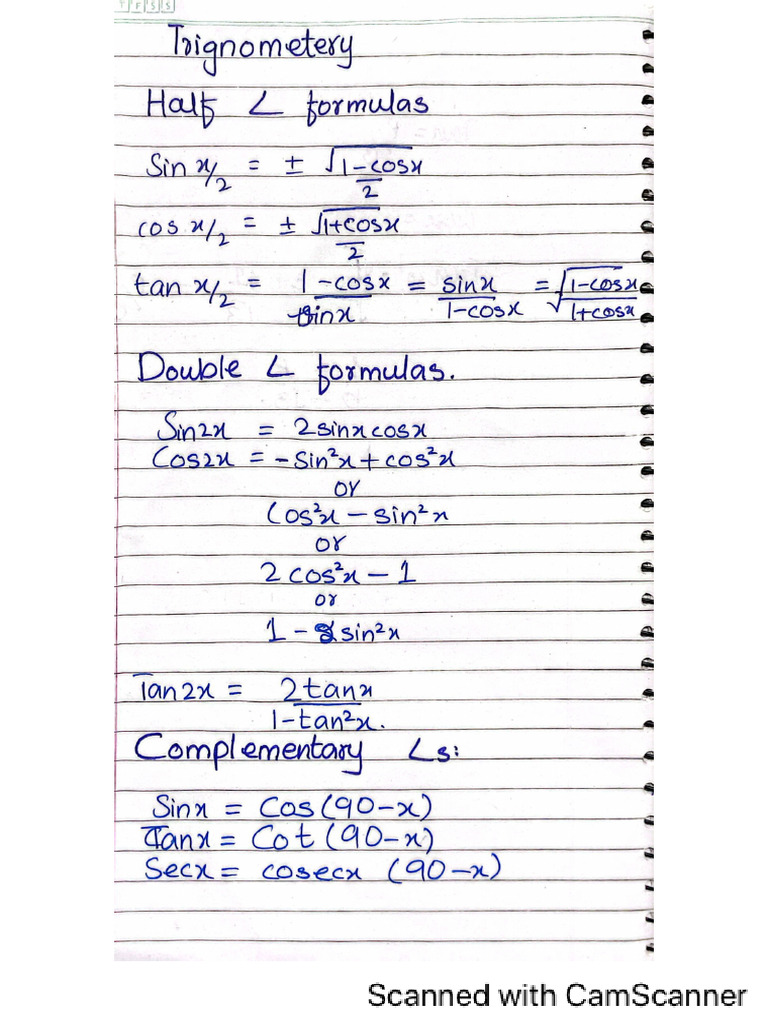 T F S S
Trignometery
Half ∠ formulas
Sin x/2 = ± √1-cosx / 2
cos x/2 = ± √1+cosx / 2
tan x/2 = 1-cosx / sinx = sinx / 1-cosx = √1-cosx / √1+cosx
Double ∠ formulas.
Sin2x = 2sinxcosx
Cos2x = -Sin²x + cos²x
or
Cos²x - sin²x
or
2 cos²x - 1
or
1 - 2sin²x
Tan2x = 2tanx / 1-tan²x.
Complementary ∠s:
Sinx = Cos(90-x)
Tanx = Cot (90-x)
Secx = cosecx (90-x)
Scanned with CamScanner